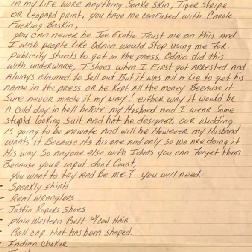 in my life wore anything Snake Skin, Tiger stripe
or Leopard print, you have me confused with Carole
Fucking Baskin,
you can never be Joe Exotic Trust me on this and
I wish people like Odnin would stop using me for
Publicity Stunts to get in the press, Odnin did this
with underware, T shirts when I first got arrested and
Always claimed to sell out But it was all a lie to get his
name in the press or he kept all the money Because it
sure never made it my way! either way it would be
a cold day in hell before my Husband and I wore some
stupid looking suit and not he designed, our wedding
is going to be private and will be however my Husband
wants it Because its his one and only so we are doing it
his way. So anyone else with Ideas you can forget them
Because your input dont Count,
you want to try and be me? you will need
- Sparkly shirts
- Real wranglers
- Justin Ropers Shoes
- Plain Western Belt
- Ball cap that has been shaped.
- Indian choker